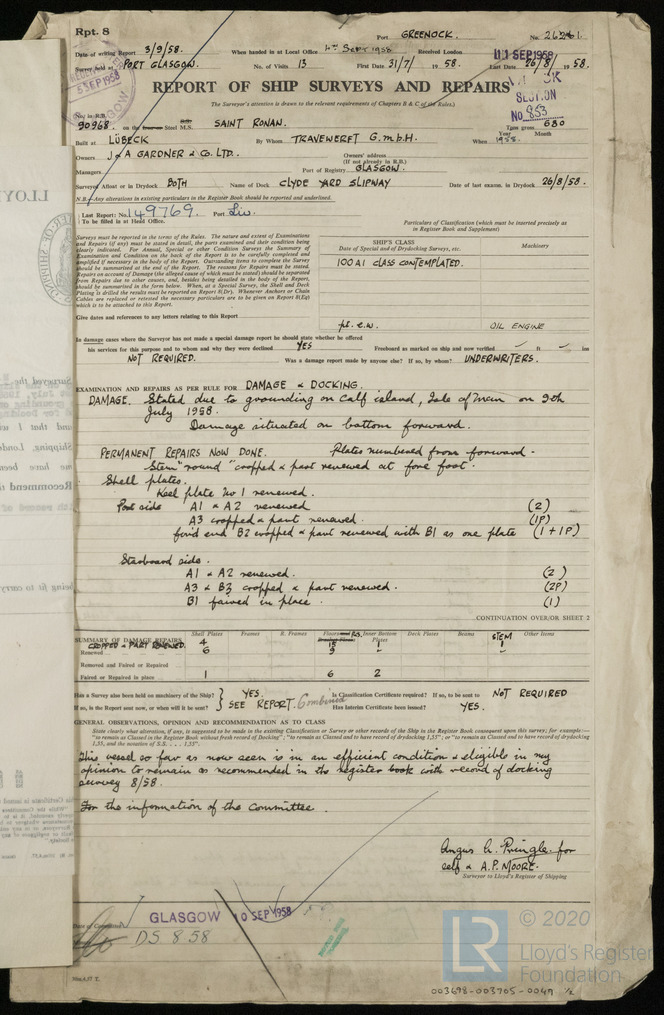 Rpt. 8
Port GREENOCK. No. 26261.
Date of writing Report 3/9/58. When handed in at Local Office 4th Sept 1958 Received London 11 SEP 1958
Survey held at PORT GLASGOW. No. of Visits 13 First Date 31/7/ 1958. Last Date 26/8/ 1958.
REPORT OF SHIP SURVEYS AND REPAIRS
SECTION
No 853
The Surveyor's attention is drawn to the relevant requirements of Chapters B & C of the Rules.)
No. in R.B. 90968. on the Steel M.S. SAINT RONAN. Tons gross 680
Year Month
Built at LÜBECK By Whom TRAVEWERFT G.m.b.H. When 1958.
Owners J & A GARDNER & CO. LTD. Owners' address
(If not already in R.B.)
Managers Port of Registry GLASGOW.
Surveyed Afloat or in Drydock BOTH Name of Dock CLYDE YARD SLIPWAY Date of last exam. in Drydock 26/8/58.
N.B.—Any alterations in existing particulars to the Register Book should be reported and underlined.
Last Report: No. 149769. Port Liv.
To be filled in at Head Office.
Particulars of Classification (which must be inserted precisely as
in Register Book and Supplement)
Surveys must be reported in the terms of the Rules. The nature and extent of Examinations
and Repairs (if any) must be stated in detail, the parts examined and their condition being
clearly indicated. For Annual, Special or other Condition Surveys the Summary of
Examination and Condition on the back of the Report is to be carefully completed and
amplified if necessary in the body of the Report. Outstanding items to complete the Survey
should be summarised at the end of the Report. The reasons for Repairs must be stated.
Repairs on account of Damage (the alleged cause of which must be stated) should be separated
from Repairs due to other causes, and, besides being detailed in the body of the Report,
should be summarised in the form below. When, at a Special Survey, the Shell and Deck
Plating is drilled the results must be reported on Report 8(Dr). Whenever Anchors or Chain
Cables are replaced or retested the necessary particulars are to be given on Report 8(Eq)
which is to be attached to this Report.
SHIP'S CLASS
Date of Special and of Drydocking Surveys, etc.
Machinery
100A1 CLASS CONTEMPLATED.
Give dates and references to any letters relating to this Report
pt. e.w. OIL ENGINE
In damage cases where the Surveyor has not made a special damage report he should state whether he offered
his services for this purpose and to whom and why they were declined YES Freeboard as marked on ship and now verified ft. in
NOT REQUIRED. Was a damage report made by anyone else? If so, by whom? UNDERWRITERS.
EXAMINATION AND REPAIRS AS PER RULE FOR DAMAGE & DOCKING.
DAMAGE. Stated due to grounding on Calf island, Isle of Man on 9th
July 1958.
Damage situated on bottom forward.
PERMANENT REPAIRS NOW DONE. Plates numbered from forward.
Stem "round" cropped & part renewed at fore foot.
Shell plates.
Keel plate No 1 renewed.
Port side A1 & A2 renewed (2)
A3 cropped & part renewed. (1P)
forwd end B2 cropped & part renewed with B1 as one plate (1 + 1P)
Starboard side.
A1 & A2 renewed. (2)
A3 & B2 cropped & part renewed. (2P)
B1 faired in place. (1)
CONTINUATION OVER/OR SHEET 2
SUMMARY OF DAMAGE REPAIRS Shell Plates Frames R. Frames Floors Inner Bottom Plates Deck Plates Beams STEM Other Items
CROPPED & PART RENEWED. 4 15 1 1
Renewed 6 9 - -
Removed and Faired or Repaired
Faired or Repaired in place 1 6 2
Has a Survey also been held on machinery of the Ship? YES. Is Classification Certificate required? If so, to be sent to NOT REQUIRED
If so, is the Report sent now, or when will it be sent? SEE REPORT. Combined Has Interim Certificate been issued? YES.
GENERAL OBSERVATIONS, OPINION AND RECOMMENDATION AS TO CLASS
State clearly what alteration, if any, is suggested to be made in the existing Classification of Survey or other records of the Ship in the Register Book consequent upon this survey; for example:—
"to remain as Classed in the Register Book without fresh record of Docking"; "to remain as Classed and to have record of drydocking 1,55"; or "to remain as Classed and to have record of drydocking
1,55, and the notation of S.S. . . . 1,55".
This vessel so far as now seen is in an efficient condition & eligible in my
opinion to remain as recommended in the register book with record of docking
survey 8/58.
For the information of the Committee.
Angus A. Pringle. for
self & A.P. MOORE.
Surveyor to Lloyd's Register of Shipping
Date of Committee GLASGOW 10 SEP 1958
DS 8.58
© 2020
LR
Lloyd's Register
Foundation
003698-003705-0049 1/2